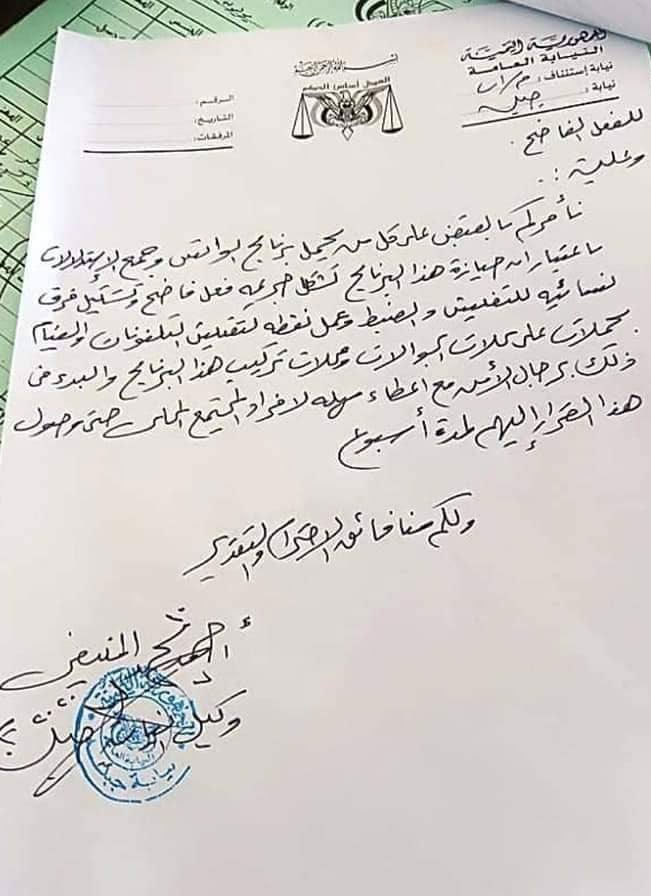 الجمهورية اليمنية
النيابة العامة
نيابة إستئناف: م/إب
نيابة: جبلة
بسم الله الرحمن الرحيم
العدل أساس الحكم
الرقم:
التاريخ:
المرفقات:
للفعل الفاضح.
وعليه:.
نأمركم بالقبض على كل من يحمل برنامج الواتس وجمع الإستدلالات
باعتبار ان حيازة هذا البرنامج تشكل جريمة فعل فاضح وتشكيل فرق
نسائيه للتفتيش والضبط وعمل نقطه لتفتيش التلفونات والقيام
بحملات على محلات الجوالات ومحلات تركيب هذا البرنامج والبدء في
ذلك برجال الأمن مع اعطاء مهله لافراد المجتمع المحلي حتى وصول
هذا القرار إليهم لمدة أسبوع
ولكم منا فائق الاحترام والتقدير
وكيل نيابة جبلة
نيابة جبلة